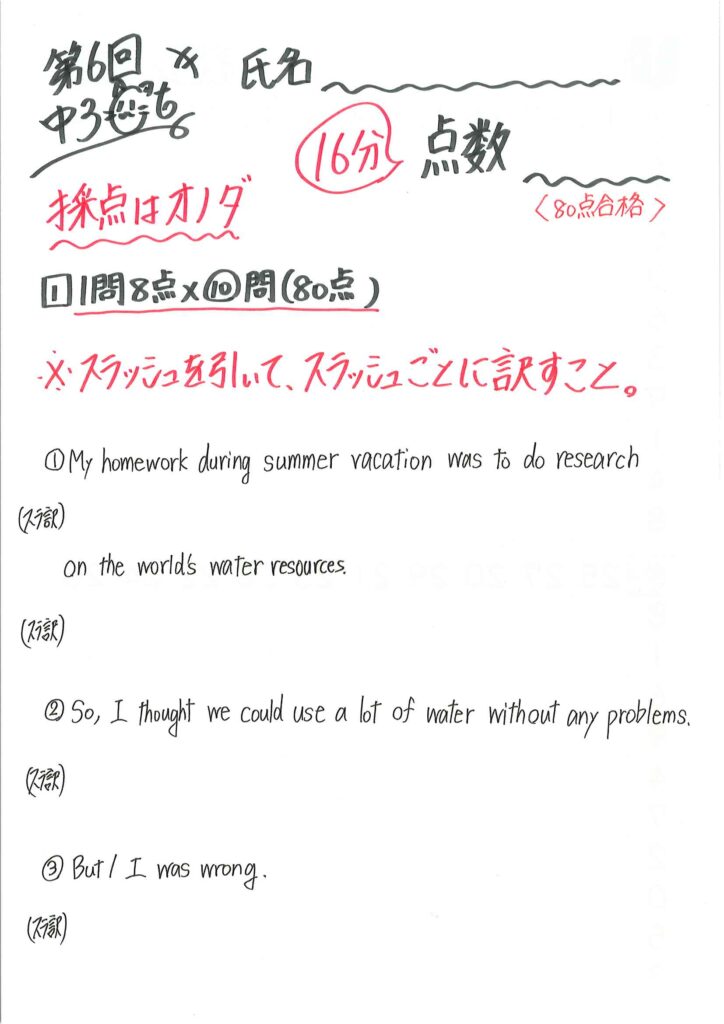 第6回 氏名
中3 6
16分 点数
採点はオノダ
〈80点合格〉
1 1問8点×⑩問(80点)
※スラッシュを引いて、スラッシュごとに訳すこと。
①My homework during summer vacation was to do research
(スラ訳)
on the world's water resources.
(スラ訳)
②So, I thought we could use a lot of water without any problems.
(スラ訳)
③But/ I was wrong.
(スラ訳)